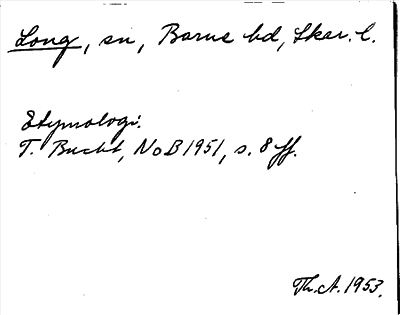 Long, sn, Barne hd, Skar. l.
Etymologi.
T. Bucht, NoB 1951, s. 8 ff.
Th. A. 1953.